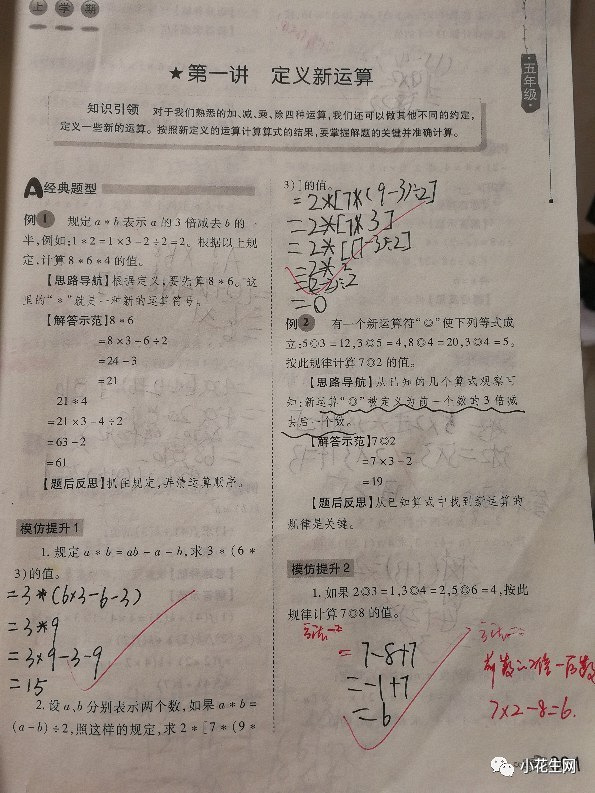 上 学 期
五年级
★第一讲 定义新运算
知识引领 对于我们熟悉的加、减、乘、除四种运算,我们还可以做其他不同的约定,
定义一些新的运算。按照新定义的运算计算算式的结果,要掌握解题的关键并准确计算。
A 经典题型
例1 规定a*b表示a的3倍减去b的一
半,例如:1*2=1×3-2÷2=2。根据以上规
定,计算8*6*4的值。
【思路导航】根据定义,要先算8*6。这
里的“*”就是一种新的运算符号。
【解答示范】8*6
=8×3-6÷2
=24-3
=21
21*4
=21×3-4÷2
=63-2
=61
【题后反思】抓住规定,弄清运算顺序。
模仿提升1
1. 规定a*b=ab-a-b,求3*(6*
3)的值。
=3*(6×3-6-3)
=3*9
=3×9-3-9
=15
2. 设a、b分别表示两个数,如果a*b=
(a-b)÷2,照这样的规定,求2*[7*(9*
3)]的值。
=2*[7*(9-3)÷2]
=2*[7*3]
=2*[(7-3)÷2]
=2*2
=0
例2 有一个新运算符“◎”使下列等式成
立:5◎3=12,3◎5=4,8◎4=20,3◎4=5。
按此规律计算7◎2的值。
【思路导航】从已知的几个算式观察可
知:新运算“◎”被定义为前一个数的3倍减
去后一个数。
【解答示范】7◎2
=7×3-2
=19
【题后反思】从已知算式中找到新运算的
规律是关键。
模仿提升2
1. 如果2◎3=1,3◎4=2,5◎6=4,按此
规律计算7◎8的值。
=7-8+7
=-1+7
=6
前数的2倍-后数
7×2-8=6.
小花生网